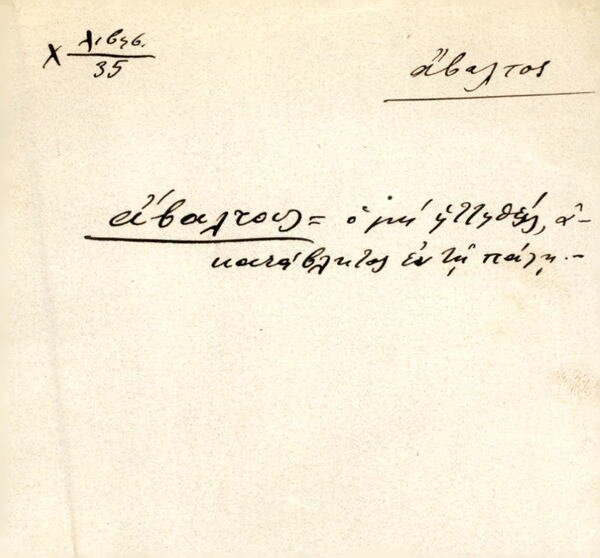 Χ Λιβησ.
35
ἄβαλτος
ἄβαλτους = ὁ μή ἡττηθείς, ἀ-
κατάβλητος ἐν τῇ πάλῃ.-